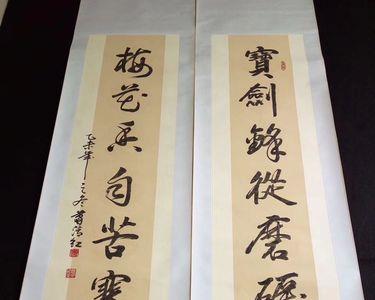 寶劍鋒從磨礪
梅花香自苦寒
乙未年之冬